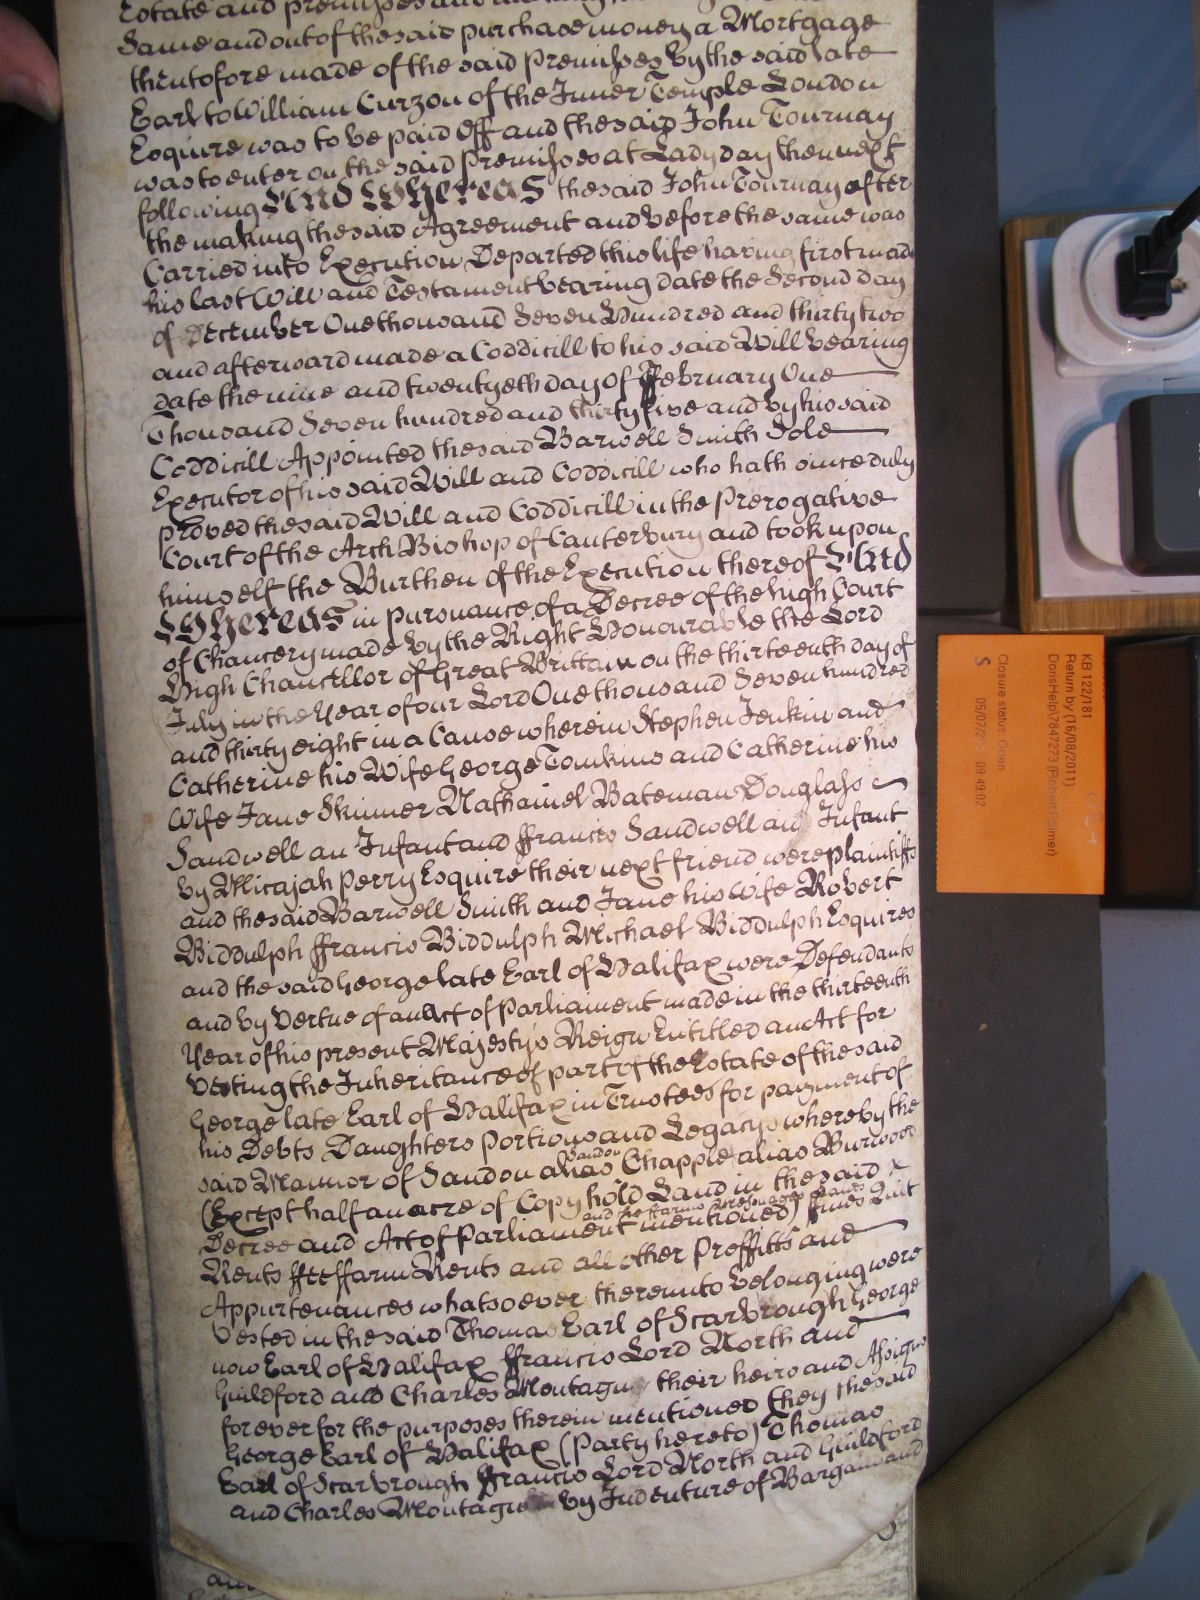 Estate and premisses and
Same and out of the said purchase money a Mortgage
thentofore made of the said Premisses by the said late
Earl to William Curzon of the Inner Temple London
Esquire was to be paid off and the said John Tournay
was to enter on the said premisses at Ladyday then next
following And Whereas the said John Tournay after
the making the said Agreement and before the same was
Carried into Execution Departed this life having first made
his last Will and Testament bearing date the Second day
of December One thousand Seven Hundred and thirty two
and afterward made a Coddicill to his said Will bearing
date the nine and twentyeth day of ffebruary One
Thousand Seven hundred and thirty five and by his said
Coddicill Appointed the said Barwell Smith Sole
Executor of his said Will and Coddicill who hath since duly
proved the said Will and Coddicill in the Prerogative
Court of the Arch Bishop of Canterbury and took upon
himself the Burthen of the Execution thereof And
Whereas in pursuance of a Decree of the high Court
of Chancery made by the Right Honourable the Lord
High Chancellor of Great Brittain on the thirteenth day of
July in the Year of our Lord One thousand Seven hundred
and thirty eight in a Cause wherein Stephen Jenkin and
Catherine his Wife George Tomkins and Catherine his
Wife Jane Skinner Nathaniel Bateman Douglass
Sandwell an Infant and ffrancis Sandwell an Infant
by Micajah Perry Esquire their next friend were plaintiffs
and the said Barwell Smith and Jane his Wife Robert
Biddulph ffrancis Biddulph Michael Biddulph Esquires
and the said George late Earl of Halifax were Defendants
and by Vertue of an Act of Parliament made in the thirteenth
Year of his present Majesty's Reign Entitled an Act for
Vesting the Inheritance of part of the Estate of the said
George late Earl of Halifax in Trustees for payment of
his Debts Daughters portions and Legacys whereby the
said Mannor of Sandon alias Sandon Chapple alias Burwood
(Except half an acre of Copyhold Land in the said
Decree and Act of Parliament mentioned) and the ffarms Messuages Lands ffines Quit
Rents ffeeffarm Rents and all other Proffitts and
Appurtenances whatsoever thereunto belonging were
Vested in the said Thomas Earl of Scarbrough George
now Earl of Halifax ffrancis Lord North and
Guildford and Charles Montagu their heirs and Assigns
forever for the purposes therein mentioned they the said
George Earl of Halifax (Party hereto) Thomas
Earl of Scarbrough ffrancis Lord North and Guildford
and Charles Montagu by Indenture of Bargain and
KB 122/181
Return by (16/08/2011)
DorisHelp\7847273 (Robert Palmer)
Closure status: Open
S 05/07/20 09:49:02